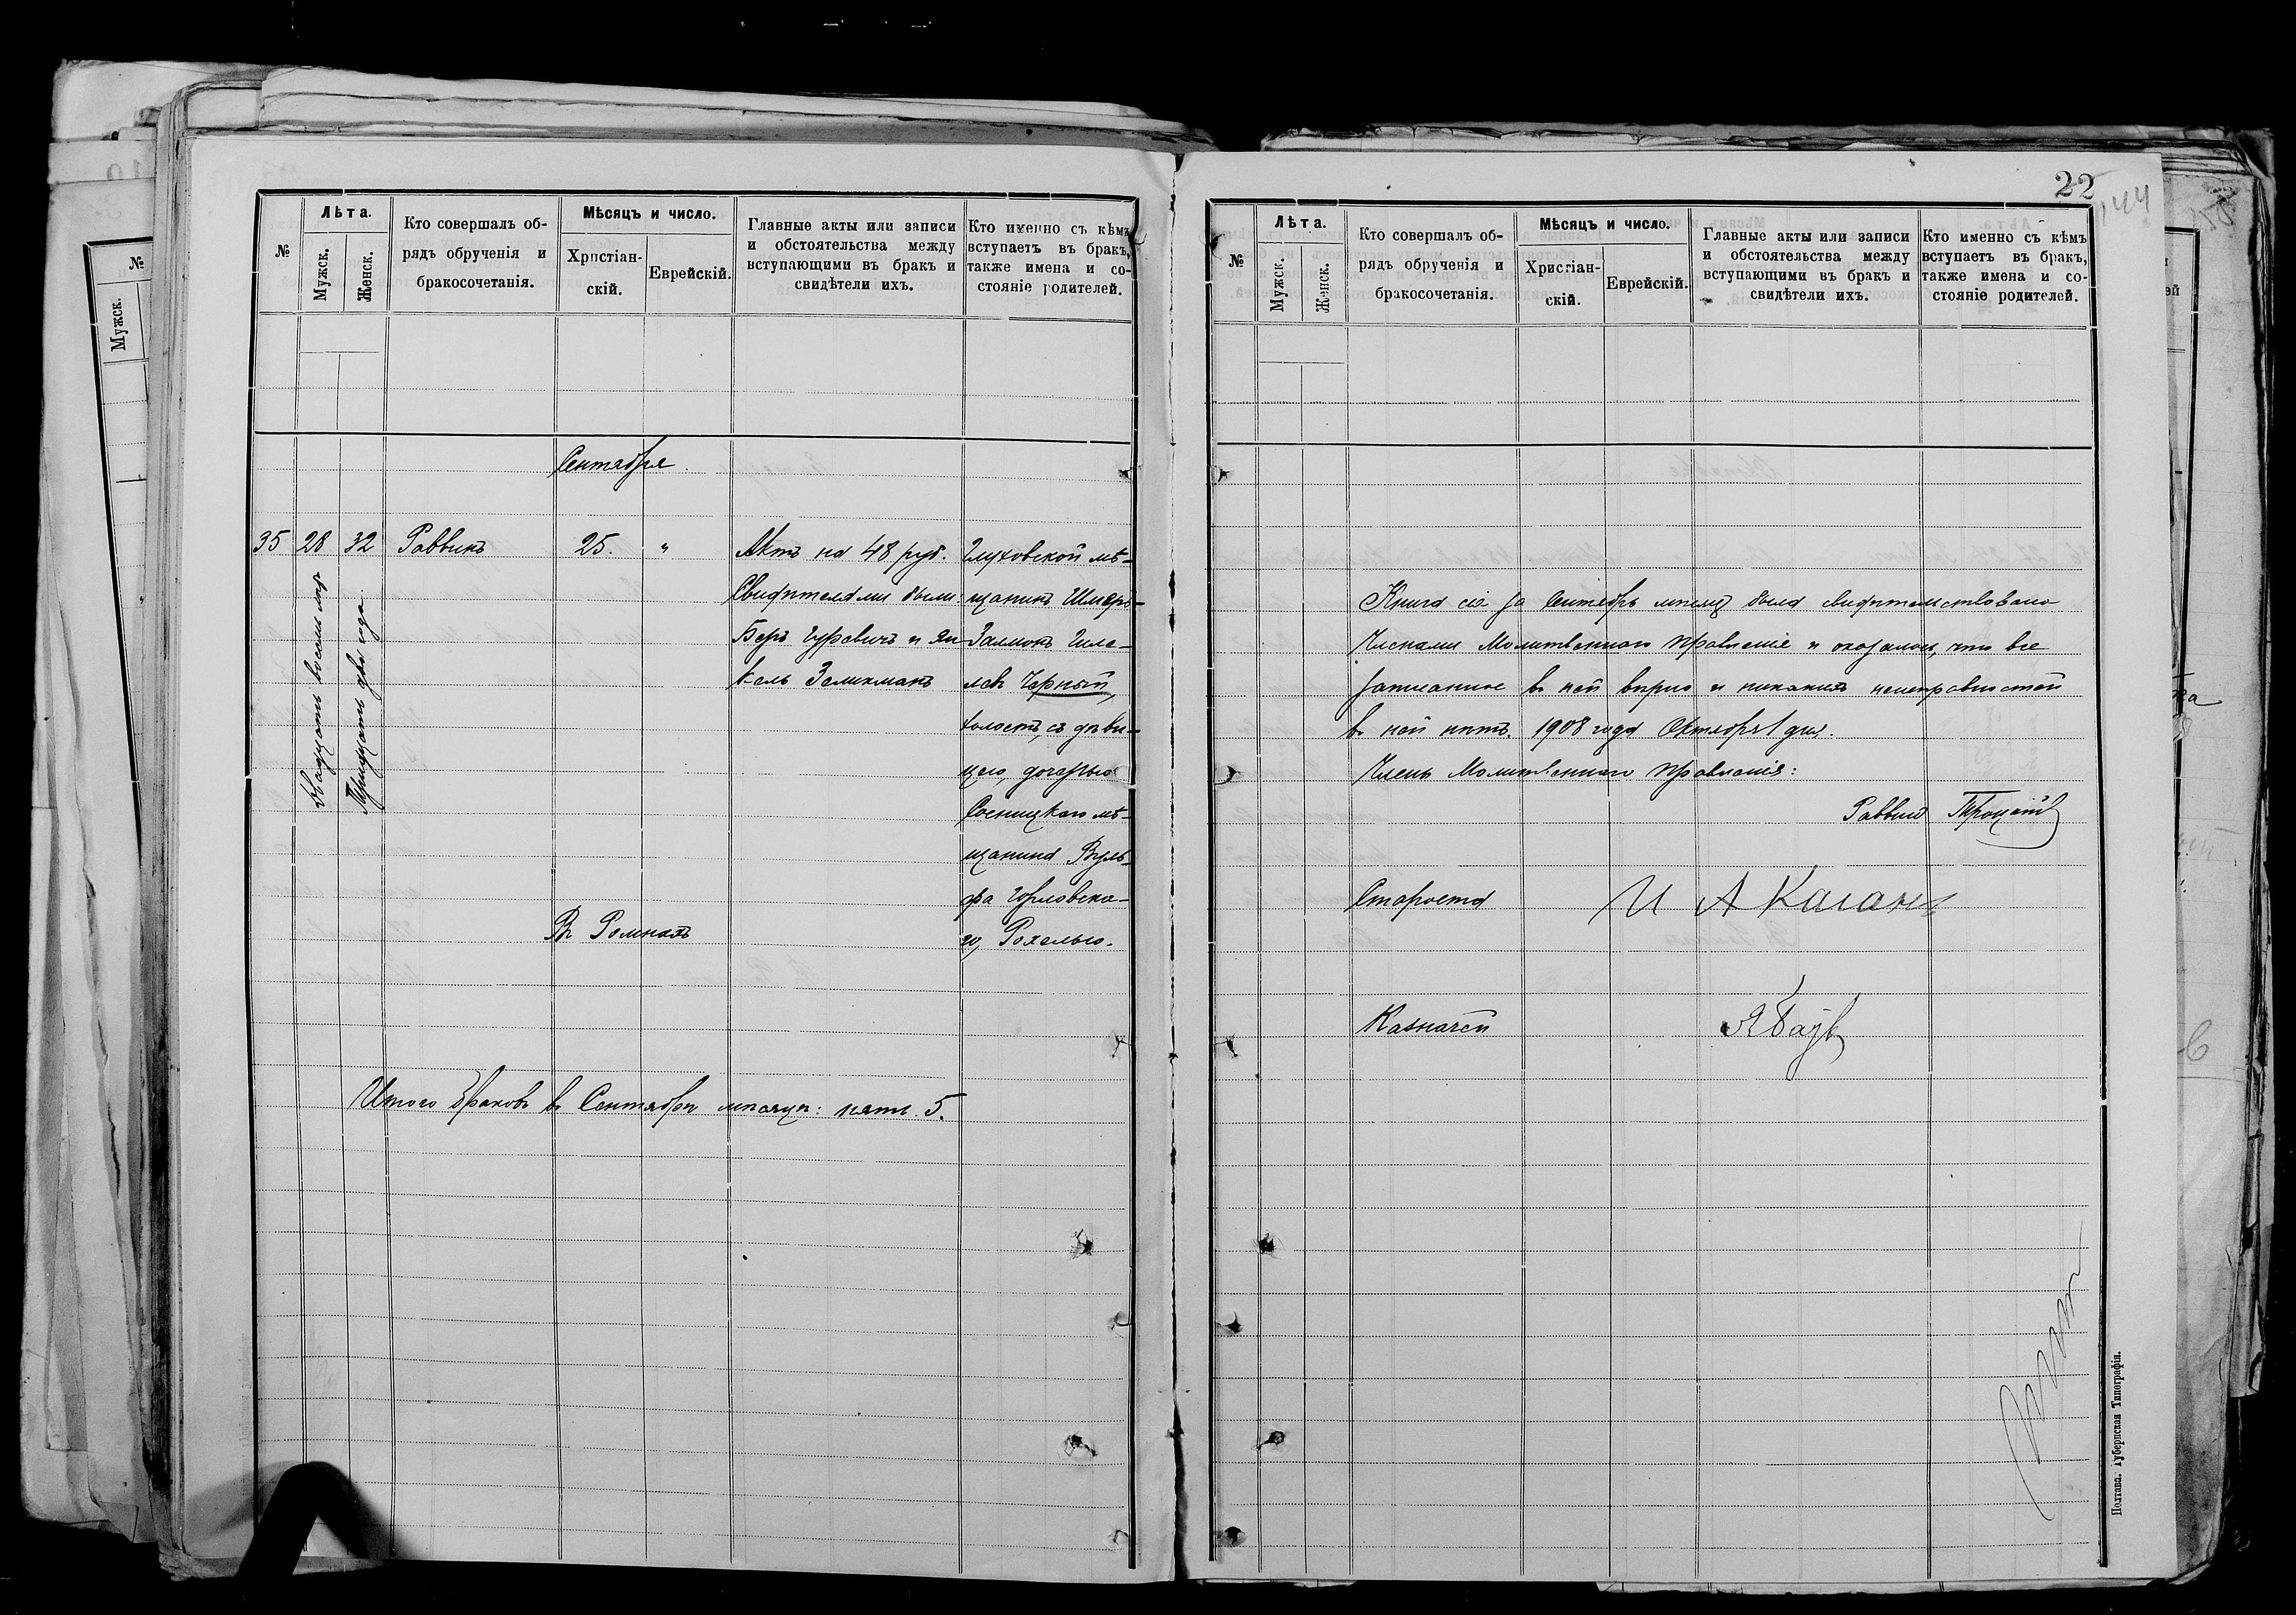 №
Лѣта.
Мужск.
Женск.
Кто совершалъ об-
рядъ обрученія и
бракосочетанія.
Мѣсяцъ и число.
Христіан-
скій.
Еврейскій.
Главные акты или записи
и обстоятельства между
вступающими въ бракъ и
свидѣтели ихъ.
Кто именно съ кѣмъ
вступаетъ въ бракъ,
также имена и со-
стояніе родителей.
Сентября.
35 28 32 Раввинъ 25. "
двадцать восемь лѣтъ
Тридцать два года.
Актъ на 48 руб.
Свидѣтелями были:
Беръ Гуревичъ и Ян-
кель Зеликманъ
Глуховской мѣ-
щанинъ Шмерь-
Залманъ
левъ Черный,
холостъ, съ дѣви-
цею, дочерью
Сосницкаго мѣ-
щанина Вуль-
фа Горловска-
го, Рохелью.
Въ Ромнахъ
Итого браковъ въ Сентябрѣ мѣсяцѣ: пять. 5.
22
144
№
Лѣта.
Мужск.
Женск.
Кто совершалъ об-
рядъ обрученія и
бракосочетанія.
Мѣсяцъ и число.
Христіан-
скій.
Еврейскій.
Главные акты или записи
и обстоятельства между
вступающими въ бракъ и
свидѣтели ихъ.
Кто именно съ кѣмъ
вступаетъ въ бракъ,
также имена и со-
стояніе родителей.
Книга сія за Сентябрь мѣсяцъ была свидѣтельствована
Членами Молитвеннаго Правленія и оказалось, что все
записанное въ ней вѣрно и никакихъ неисправностей
въ ней нѣтъ. 1908 года Октября 1 дня.
Члены Молитвеннаго Правленія:
Раввинъ Троцкій
Староста И А Каганъ
Казначей
Полтава. Губернская Типографія.
№
Мужск.